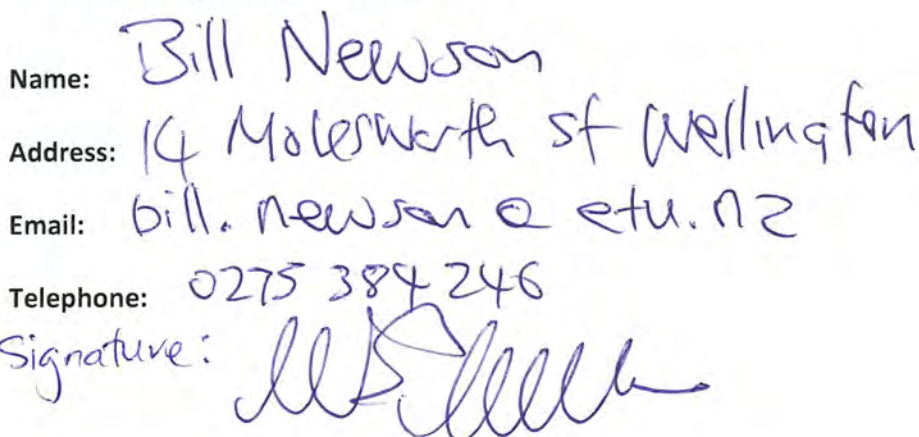 Name: Bill Newson
Address: 14 Molesworth st Wellington
Email: bill.newson @ etu.nz
Telephone: 0275 384 246
Signature: